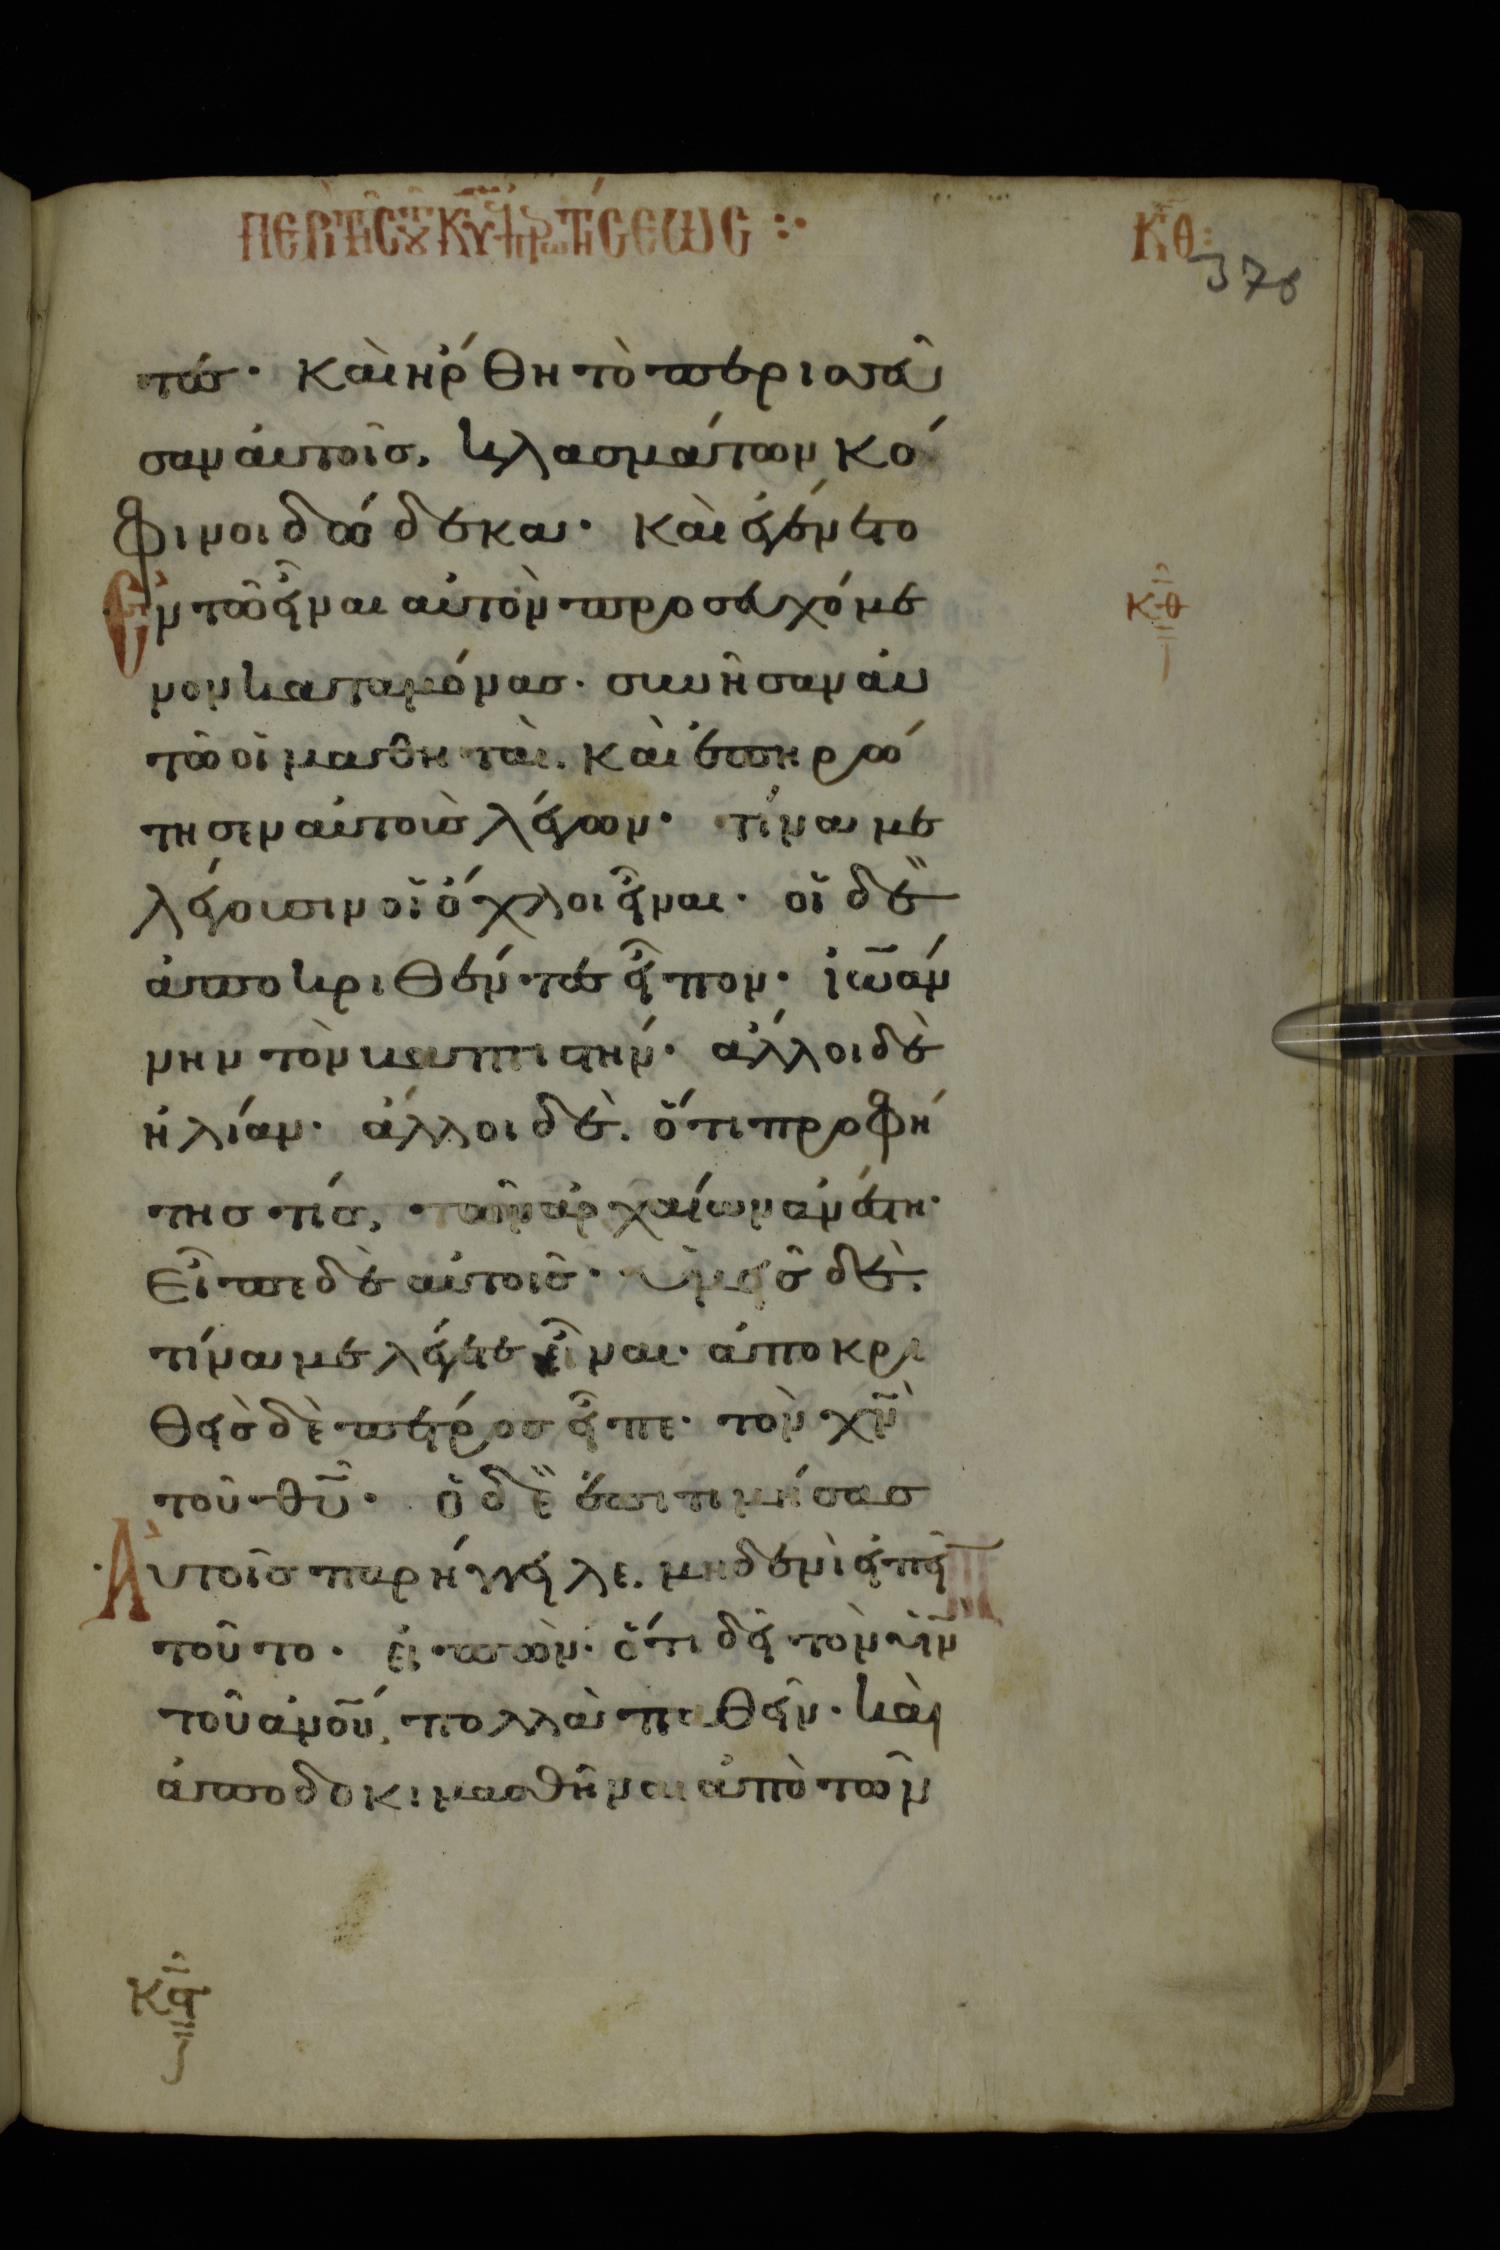 ΠΕΡΙ ΤΗΣ ΤΟΥ ΚΥ ΕΠΕΡΩΤΗΣΕΩΣ :· ΚΘ:
378
τες· καὶ ἤρθη τὸ περισσεῦ
σαν αὐτοῖσ, κλασμάτων κό
φινοι δώδεκα· καὶ ἐγένετο
Ἐν τῶ εἶναι αὐτὸν προσευχόμε κθ
νον καταμόνασ· συνῆσαν αὐ
τῶ οἱ μαθηταὶ. καὶ ἐπηρώ
τησεν αὐτοὺσ λέγων· τίνα με
λέγουσιν οἱ ὄχλοι εἶναι· οἱ δὲ
ἀποκριθέντες εἶπον· ἰωάν
νην τὸν βαπτιστήν· ἄλλοι δὲ
ἠλίαν· ἄλλοι δὲ. ὅτι προφή
τησ τίσ, τῶν ἀρχαίων ἀνέστη·
Εἶπε δὲ αὐτοῖσ· ὑμεῖσ δὲ.
τίνα με λέγετε εἶναι· ἀποκρι
θεὶσ δὲ πέτροσ εἶπε· τὸν χν
τοῦ θυ· ὁ δὲ ἐπιτιμήσασ
Αὐτοῖσ παρήγγειλε. μηδενὶ εἰπεῖν
τοῦτο· εἰπὼν· ὅτι δεῖ τὸν υἱν
τοῦ ανου, πολλὰ παθεῖν· καὶ
ἀποδοκιμασθῆναι ἀπὸ τῶν